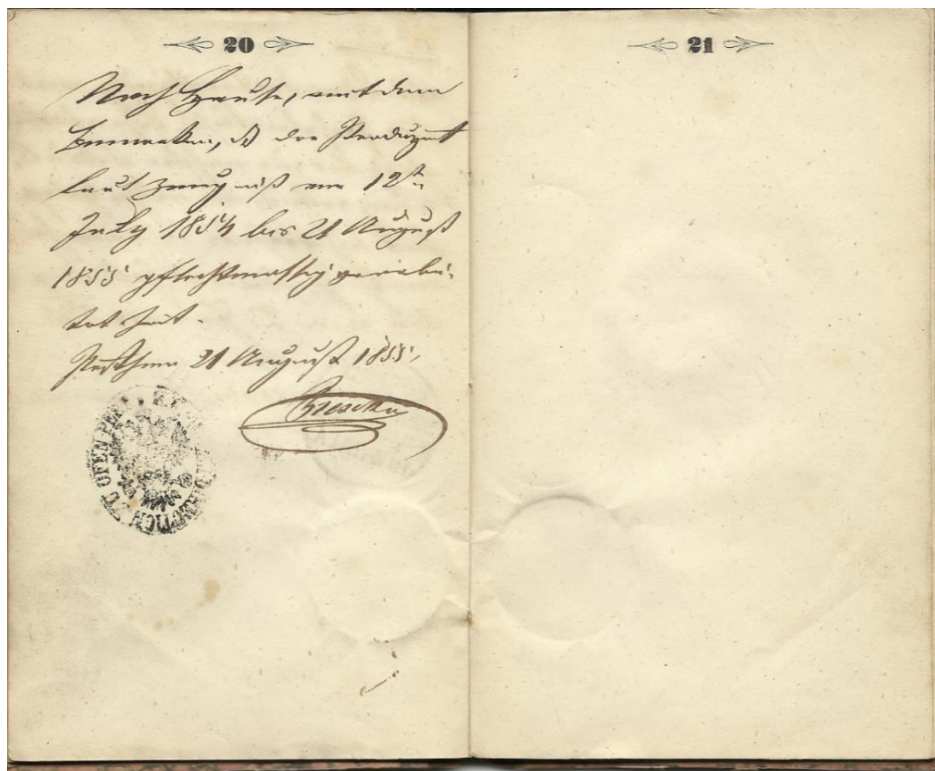 20
Nach Hause, mit dem
Bemerken, daß der Produzent
laut Zeugniß vom 12t
July 1854 bis 21 August
1855 pflichtmässig gearbei-
tet hat.
21 August 1855.
ZU OFEN
21